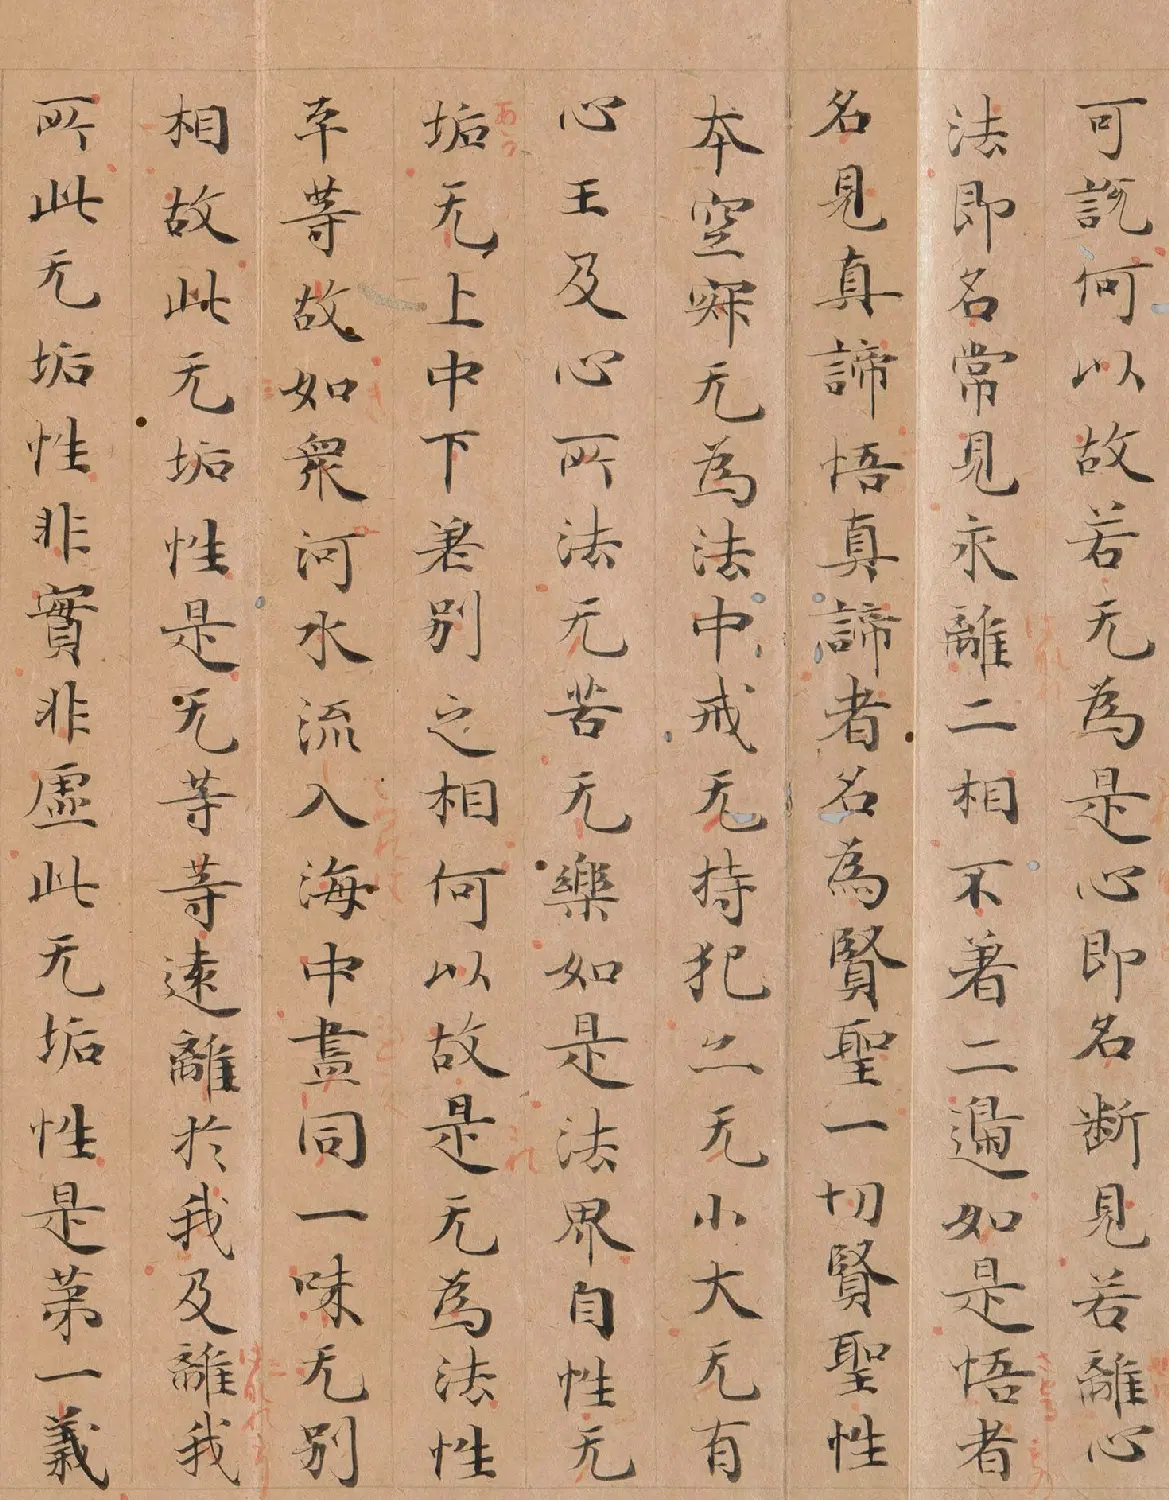 可說何以故若无為是心即名断見若離心
法即名常見永離二相不著二邊如是悟者
名見真諦悟真諦者名為賢聖一切賢聖性
本空寐无為法中戒无持犯亠无小大无有
心王及心所法无苦无樂如是法界自性无
垢无上中下差别之相何以故是无為法性
平等故如衆河水流入海中盡同一味无别
相故此无垢性是无等等遠離於我及離我
所此无垢性非實非虛此无垢性是苐一義